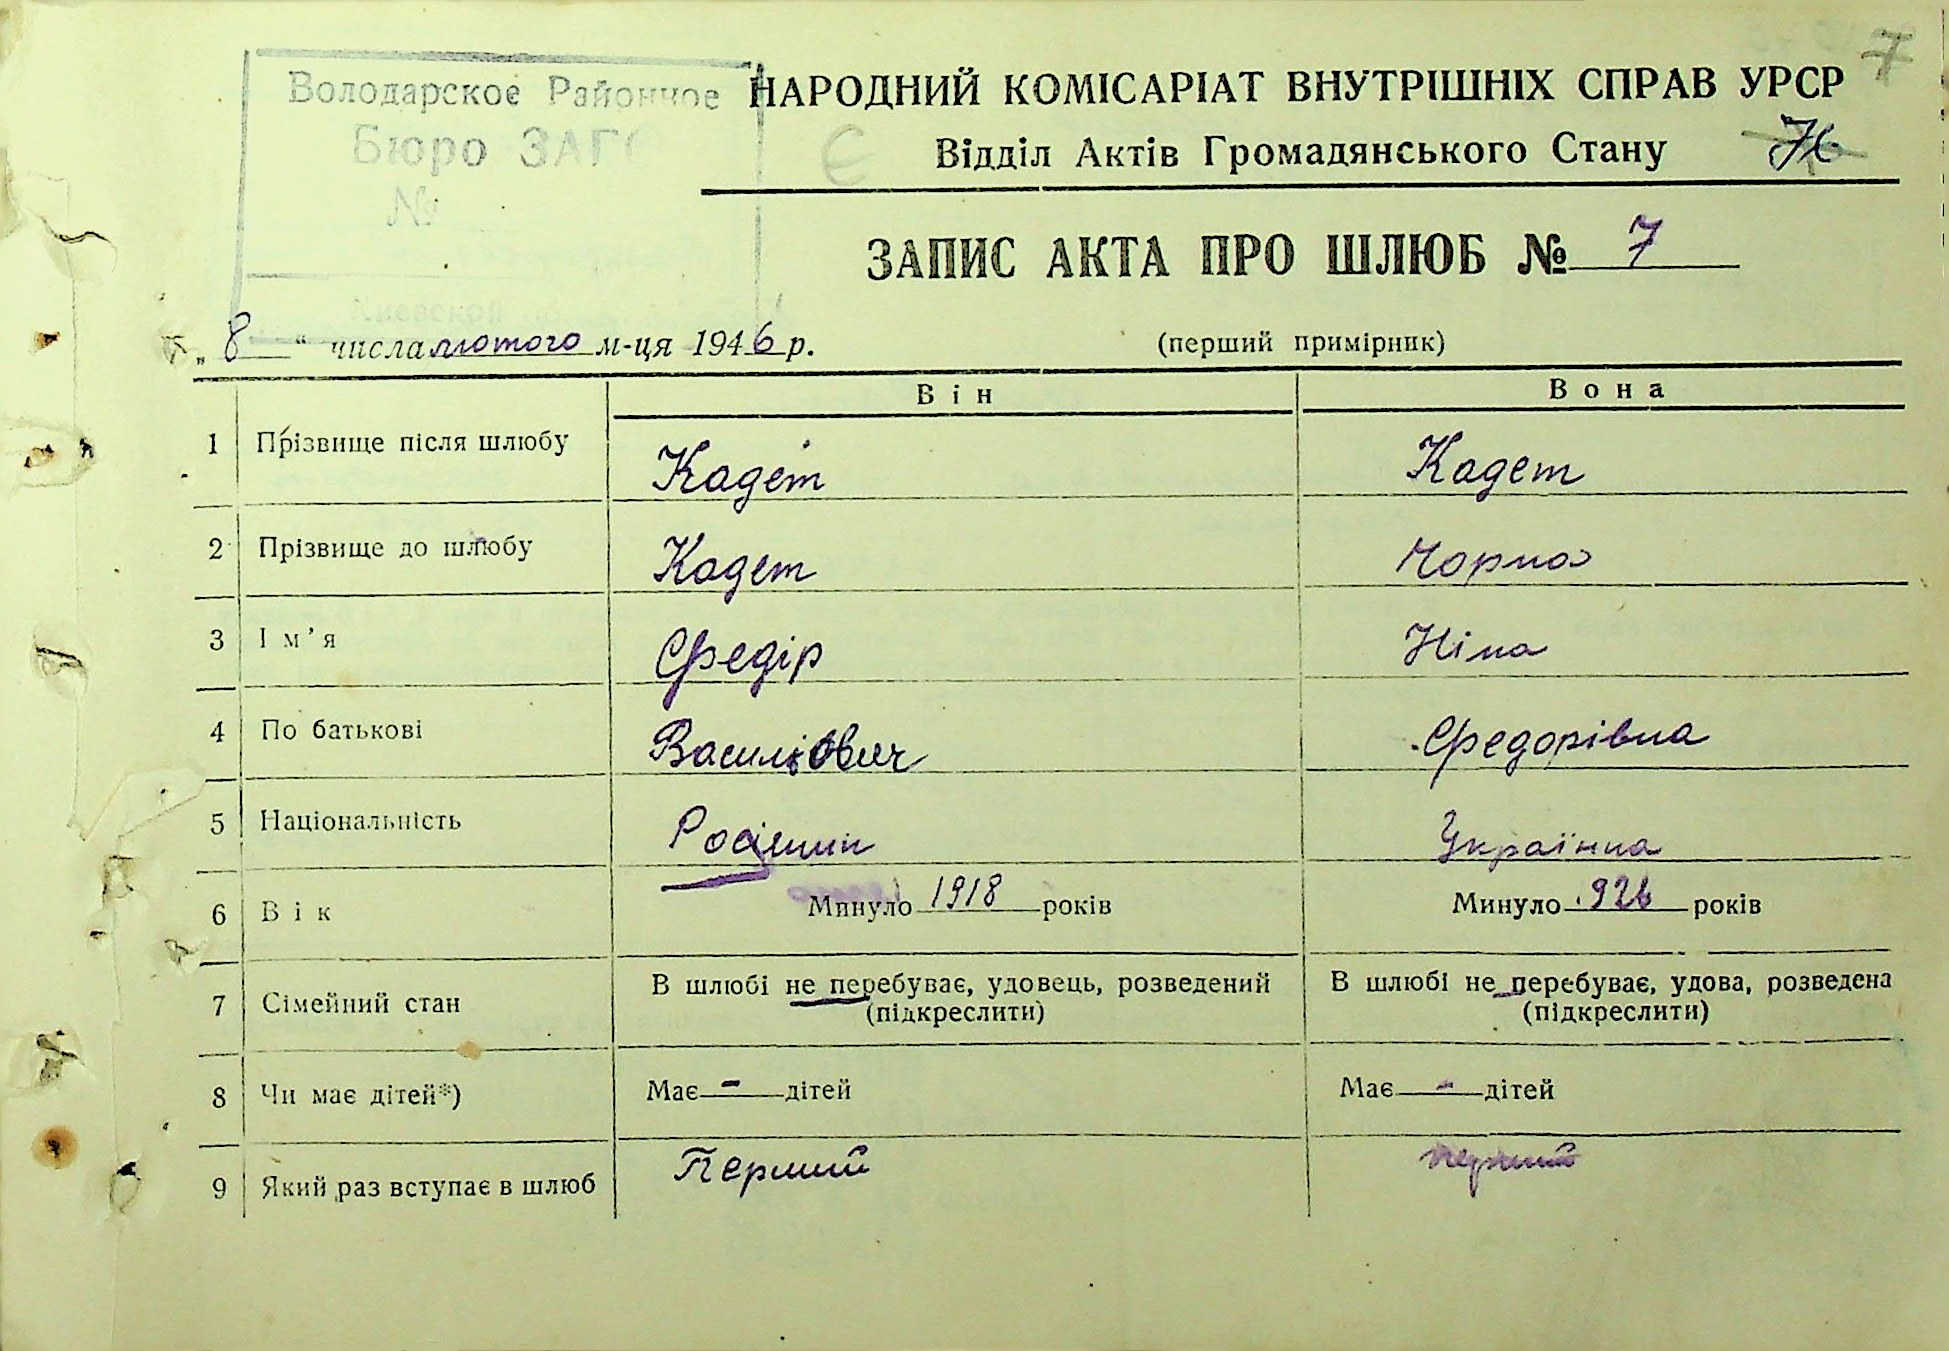 7
Володарское Районное
Бюро ЗАГС
№
Киевской
НАРОДНИЙ КОМІСАРІАТ ВНУТРІШНІХ СПРАВ УРСР
Є
Відділ Актів Громадянського Стану
ЗАПИС АКТА ПРО ШЛЮБ № 7
„ 8 “ числа лютого м-ця 1946 р. (перший примірник)
Він Вона
1 Прізвище після шлюбу Кадет Кадет
2 Прізвище до шлюбу Кадет Чорна
3 Ім’я Федір Ніна
4 По батькові Василіович Федорівна
5 Національність Росіянин Українка
6 Вік Минуло 1918 років Минуло 926 років
7 Сімейний стан В шлюбі не перебуває, удовець, розведений В шлюбі не перебуває, удова, розведена
(підкреслити) (підкреслити)
8 Чи має дітей*) Має - дітей Має - дітей
9 Який раз вступає в шлюб Перший перший